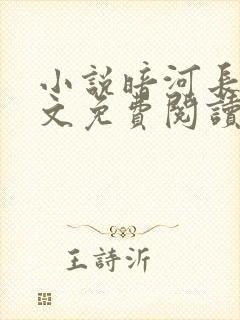 小說暗河長
文免費閱讀
王詩沂